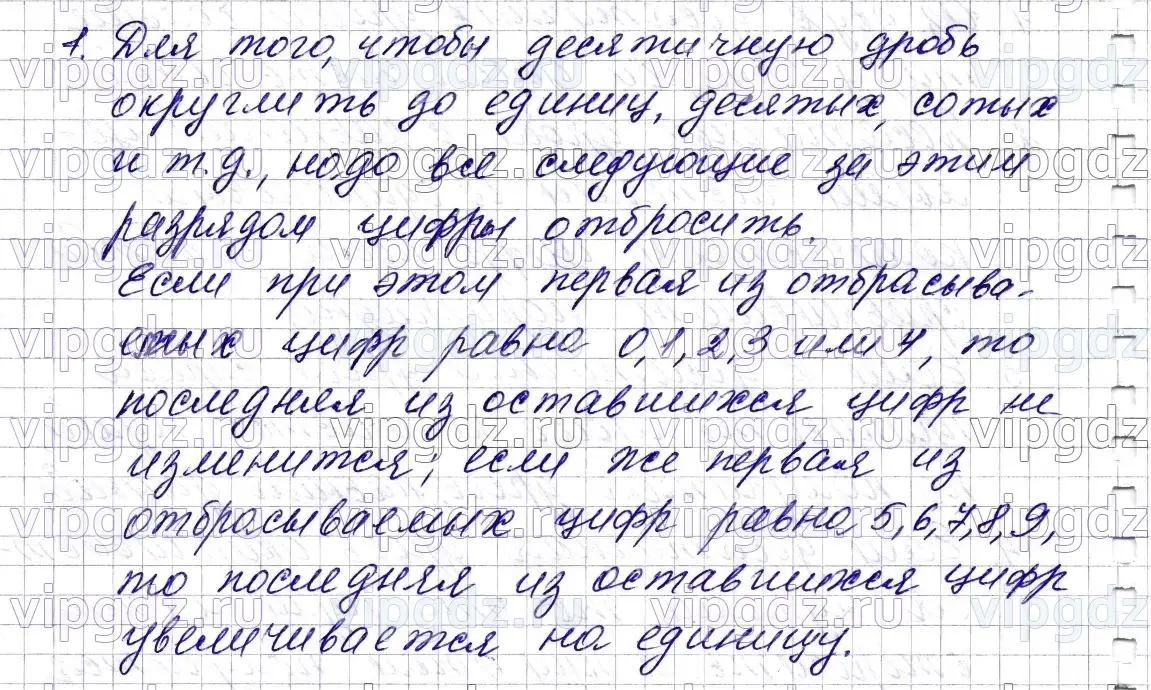 1. Для того, чтобы десятичную дробь
округлить до единиц, десятых, сотых
и т.д., надо все следующие за этим
разрядом цифры отбросить.
Если при этом первая из отбрасыва-
емых цифр равна 0,1,2,3 или 4, то
последняя из оставшихся цифр не
изменится; если же первая из
отбрасываемых цифр равна 5,6,7,8,9,
то последняя из оставшихся цифр
увеличивается на единицу.
vipgdz.ru